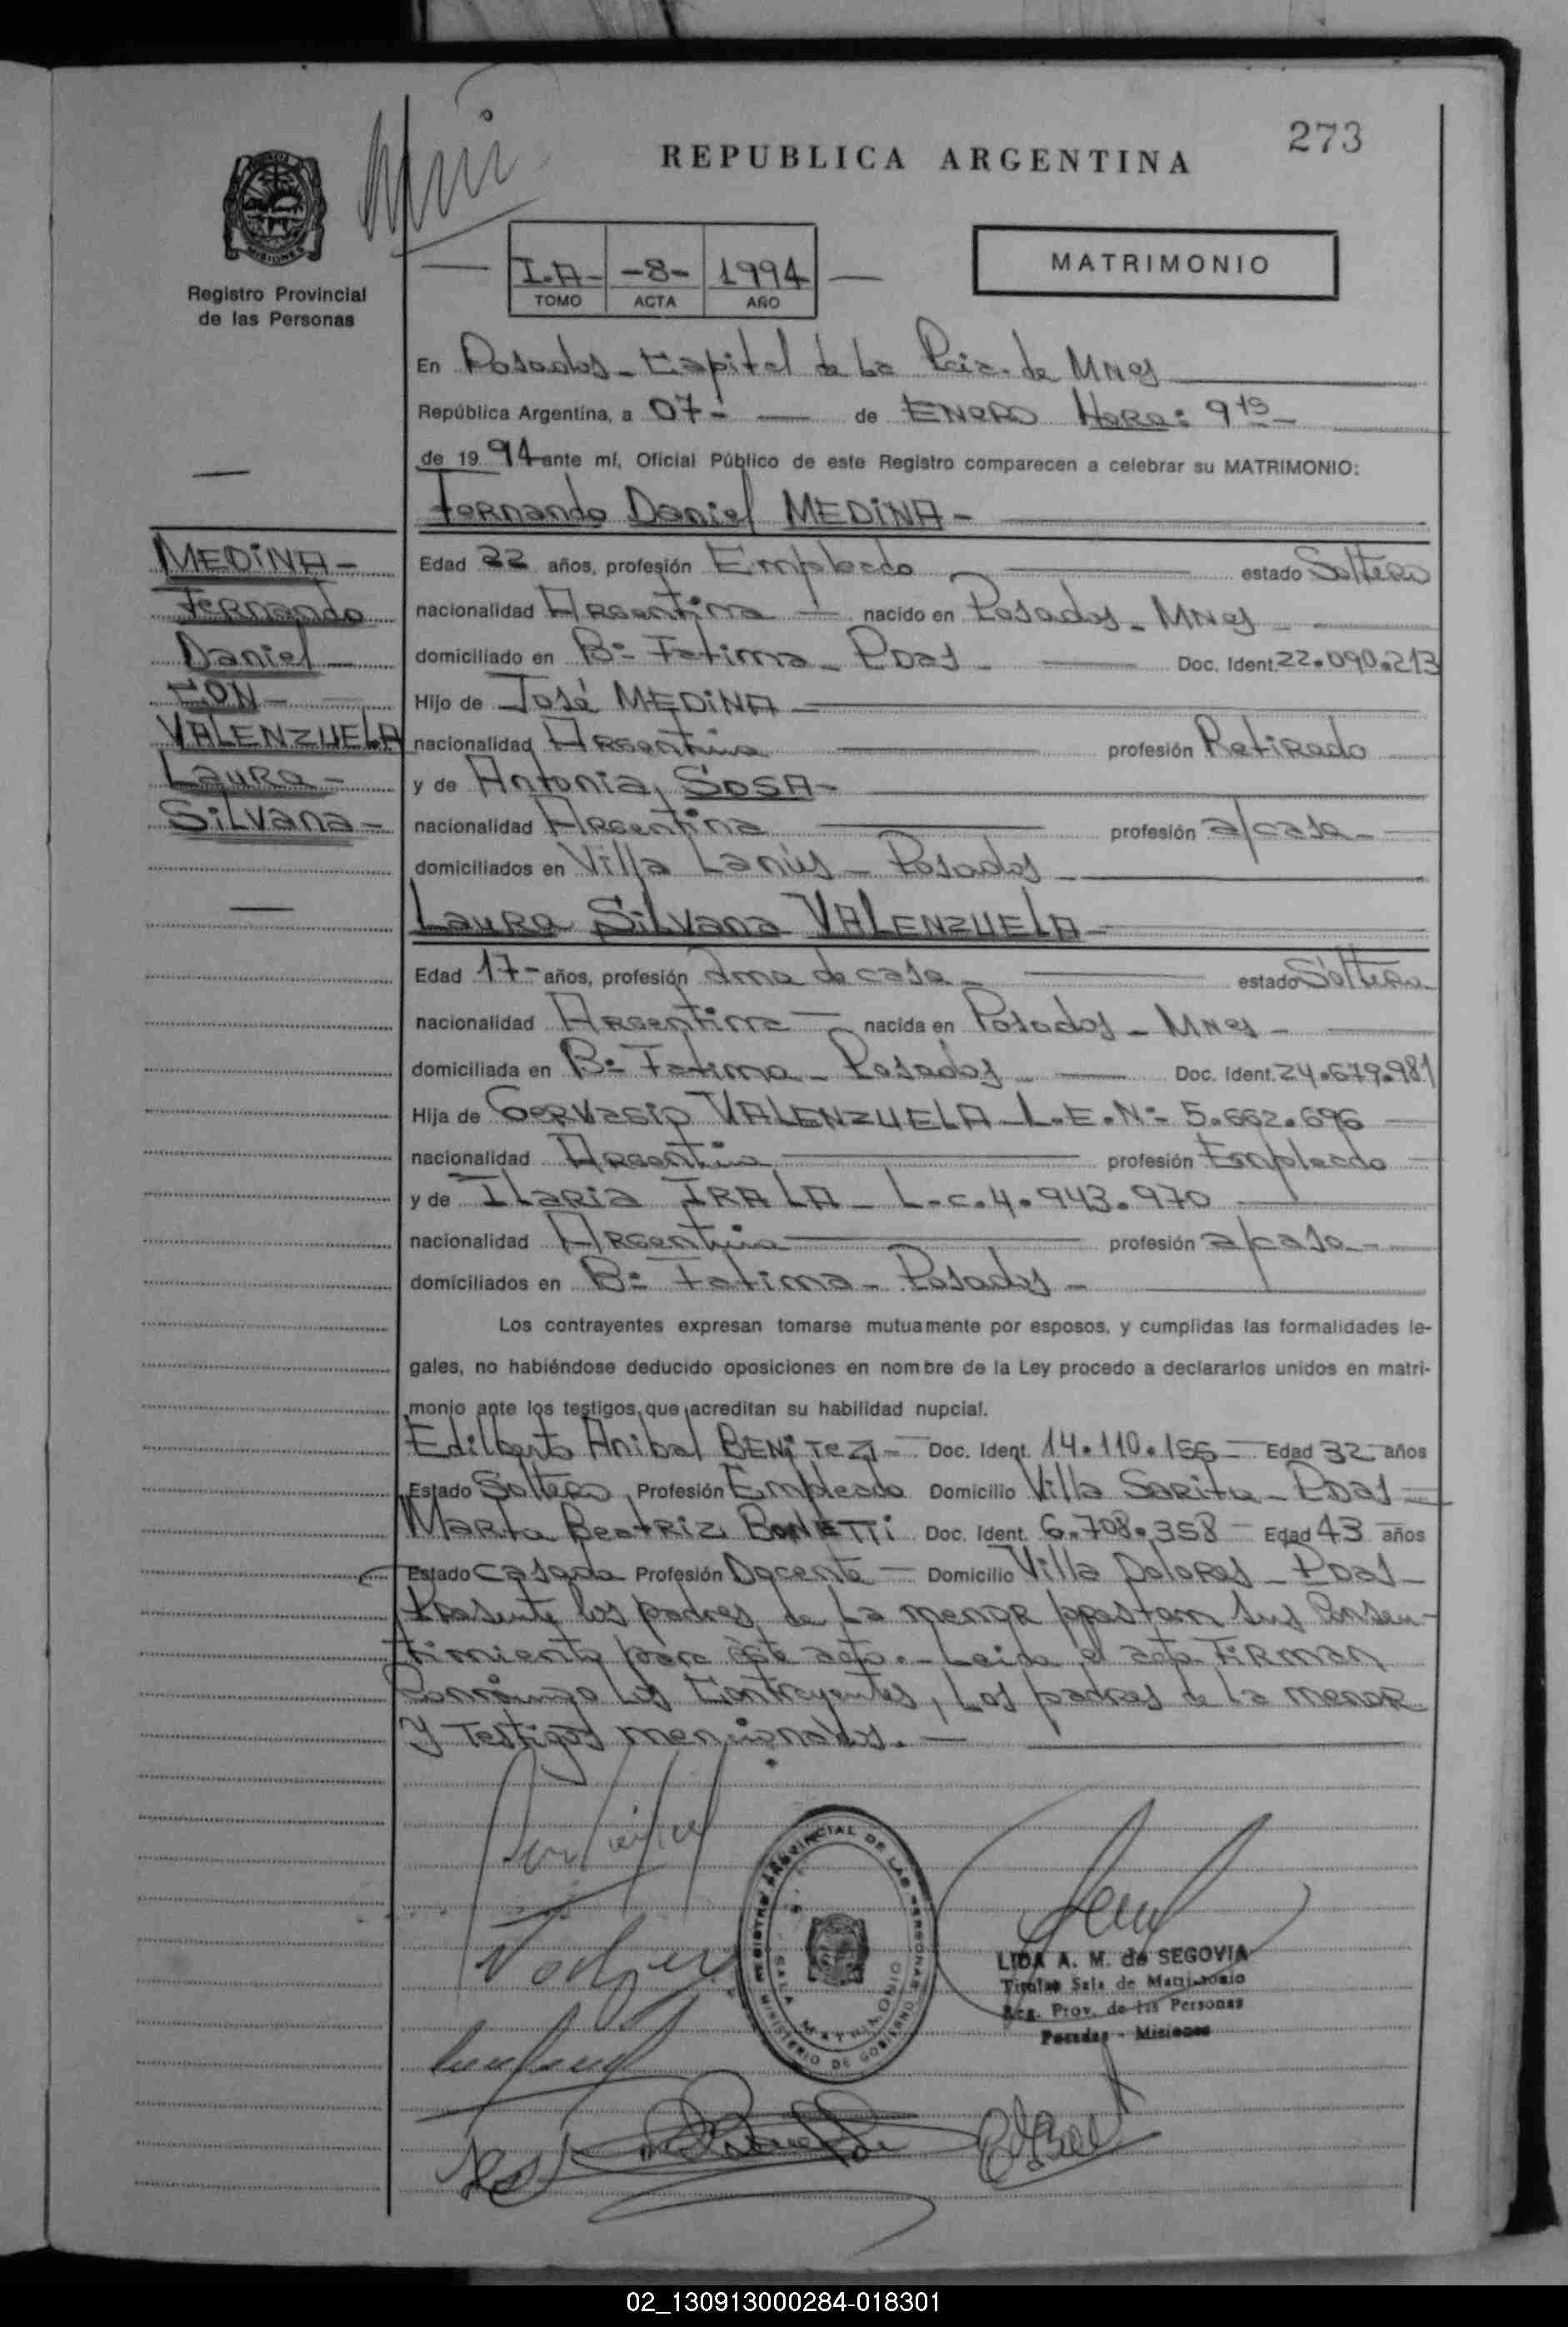 273
REPUBLICA ARGENTINA
MISIONES
Registro Provincial
de las Personas
I.A- -8- 1994
TOMO ACTA AÑO
MATRIMONIO
En Posadas - Capital de La Pcia. de Mnes
República Argentina, a 07- de ENERO Hora: 9 15-
de 19 94 ante mí, Oficial Público de este Registro comparecen a celebrar su MATRIMONIO:
Fernando Daniel MEDINA-
MEDINA-
Fernando
Daniel
CON-
VALENZUELA
Laura-
Silvana-
Edad 22 años, profesión Empleado estado Soltero
nacionalidad Argentina nacido en Posadas - Mnes -
domiciliado en Bº Fatima - Pdas - Doc. Ident. 22.090.213
Hijo de José MEDINA -
nacionalidad Argentina profesión Retirado
y de Antonia SOSA-
nacionalidad Argentina profesión a/casa-
domiciliados en Villa Lanús - Posadas -
Laura Silvana VALENZUELA-
Edad 17- años, profesión Ama de casa - estado Soltera
nacionalidad Argentina nacida en Posadas - Mnes -
domiciliada en Bº Fatima - Posadas Doc. Ident. 24.679.981
Hija de Gervasio VALENZUELA - L.E.Nº 5.662.696
nacionalidad Argentina profesión Empleado
y de Ilaria IRALA - L.c.4.943.970
nacionalidad Argentina profesión a/casa-
domiciliados en Bº Fatima - Posadas -
Los contrayentes expresan tomarse mutuamente por esposos, y cumplidas las formalidades le-
gales, no habiéndose deducido oposiciones en nombre de la Ley procedo a declararlos unidos en matri-
monio ante los testigos que acreditan su habilidad nupcial.
Edilberto Anibal BENITEZ - Doc. Ident. 14.110.155 - Edad 32 años
Estado Soltero Profesión Empleado Domicilio Villa Sarita - Pdas -
Marta Beatriz BONETTI Doc. Ident. 6.708.358 - Edad 43 años
Estado Casada Profesión Docente - Domicilio Villa Dolores - Pdas -
Presente los padres de La menor prestam sus Consen-
timiento para este acto.- Leida el acta FIRMAN
Conmigo Los Contrayentes, Los padres de La menor
Y Testigos mencionados. -
REGISTRO PROVINCIAL DE LAS PERSONAS
SALA MATRIMONIO
MINISTERIO DE GOBIERNO
LIDA A. M. de SEGOVIA
Titular Sala de Matrimonio
Reg. Prov. de las Personas
Posadas - Misiones
02_130913000284-018301